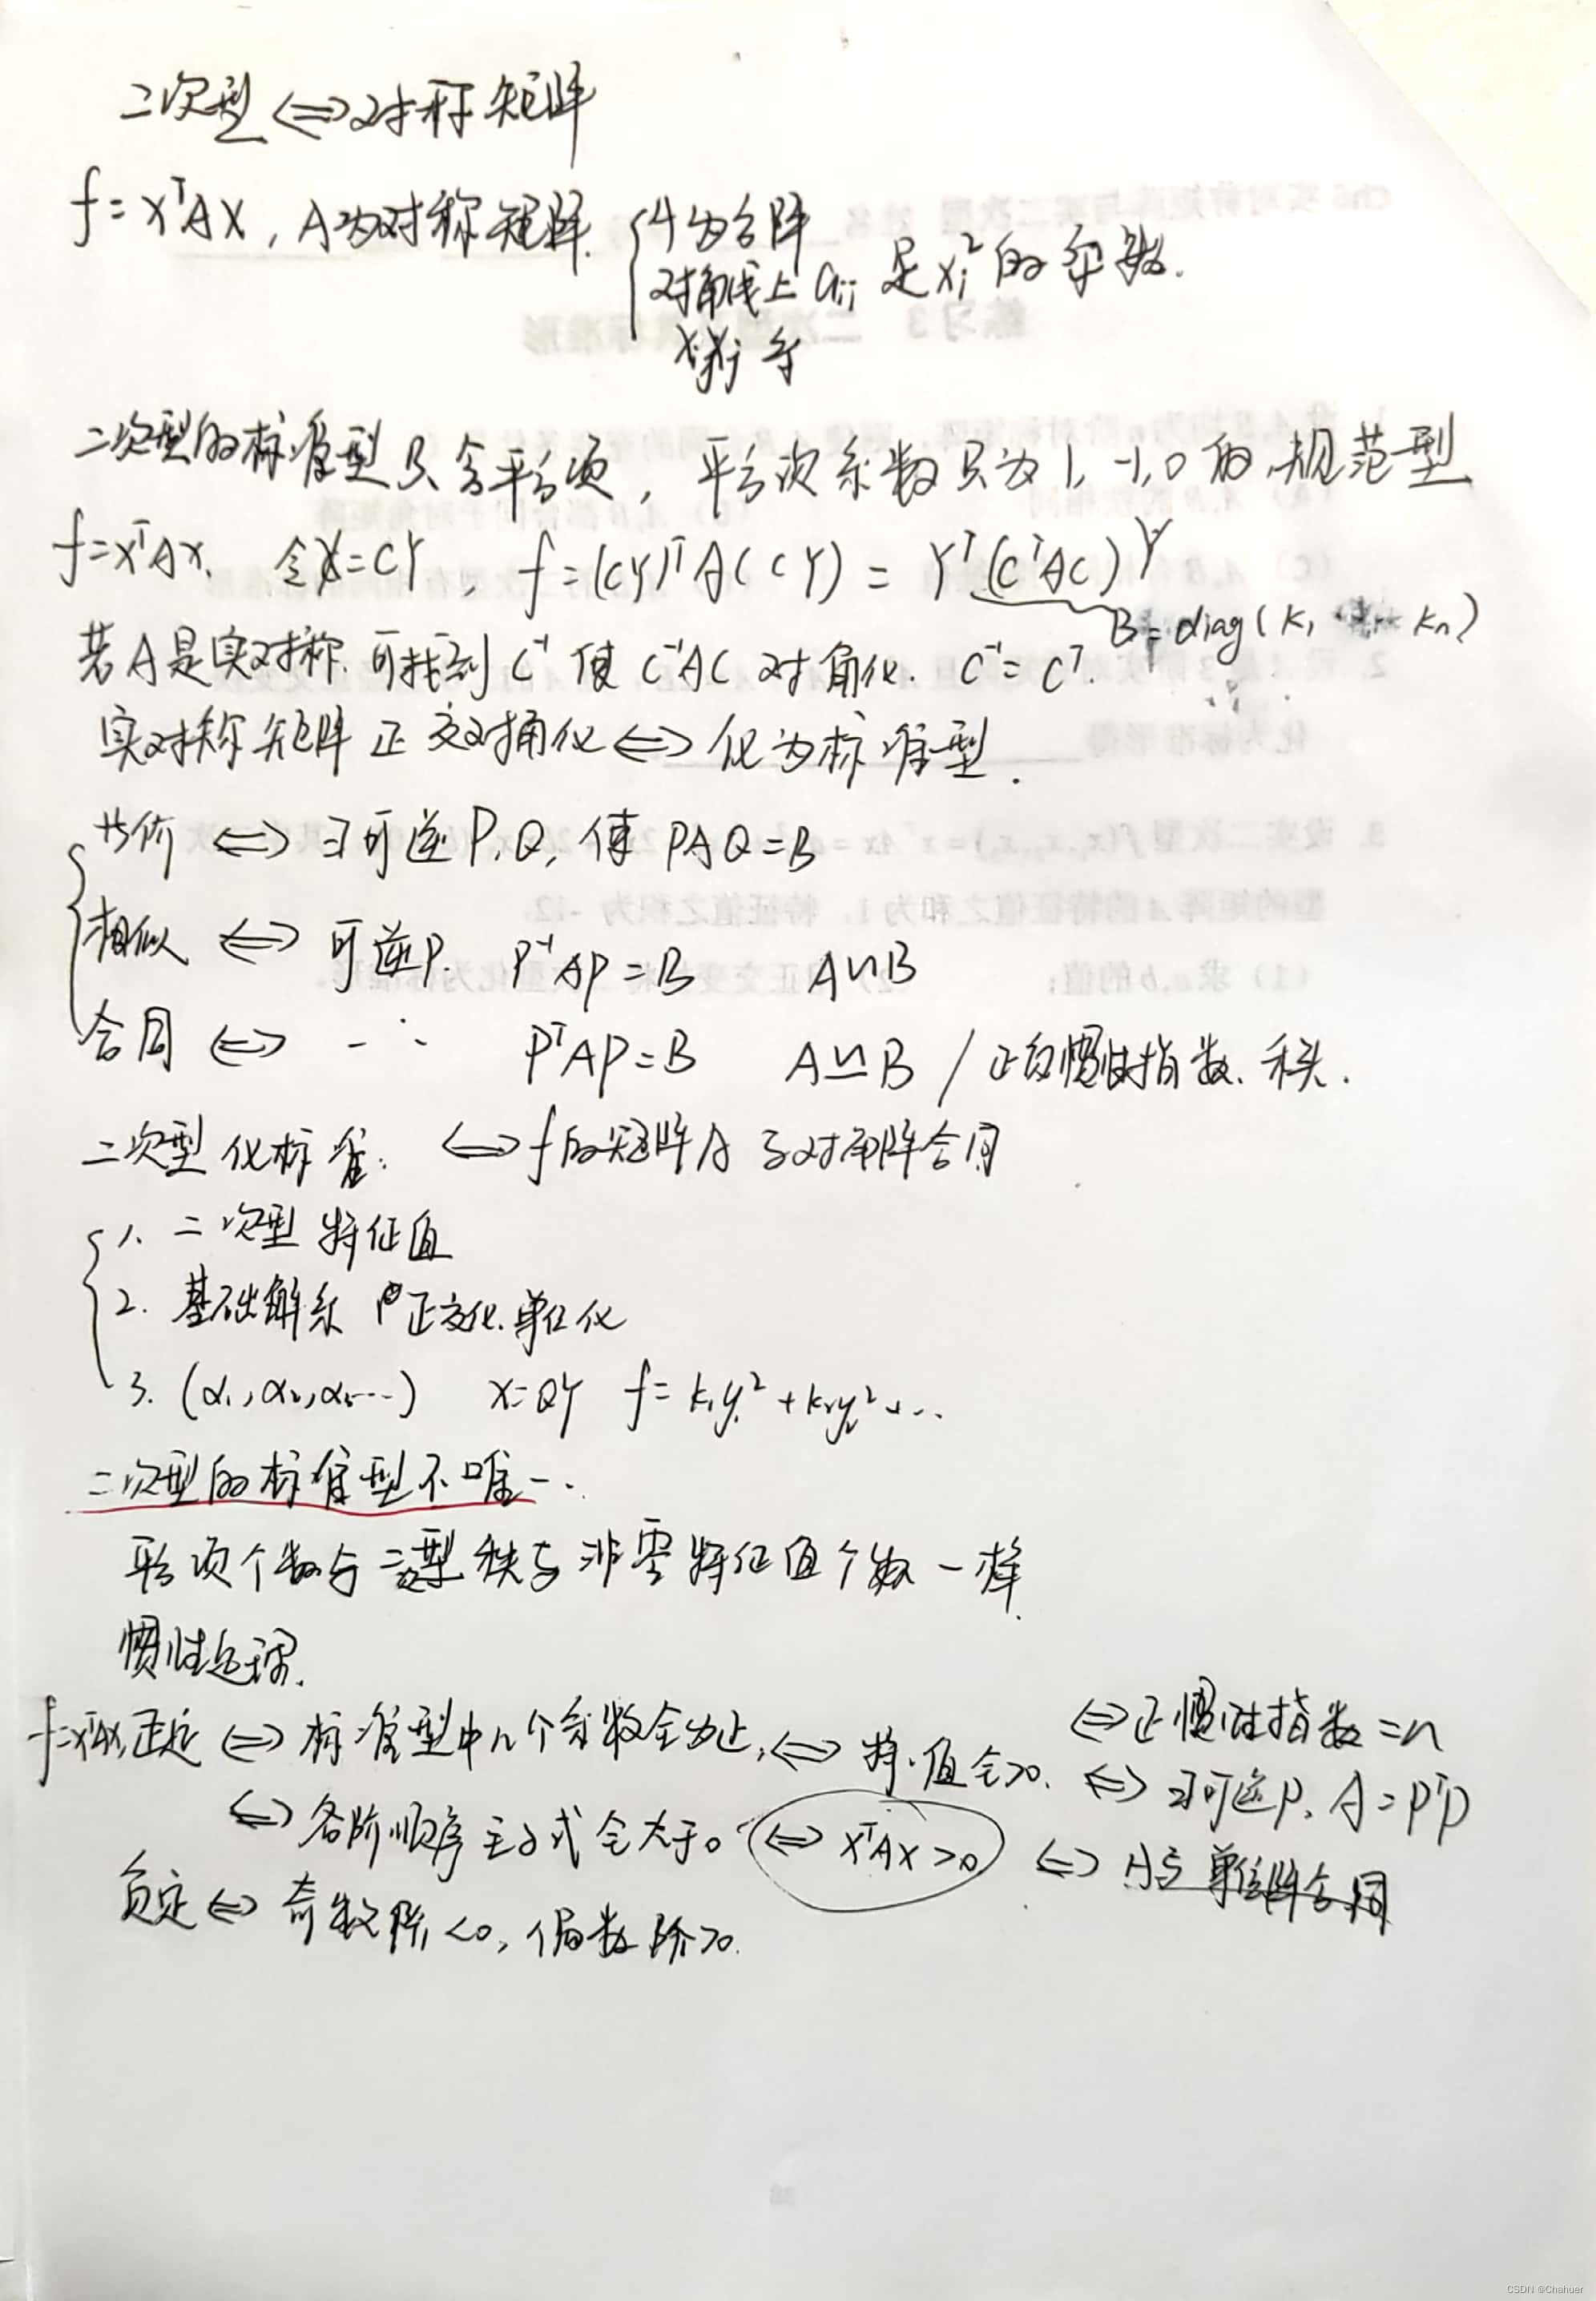 二次型 ⟺ 对称矩阵
f = XᵀAX, A为对称矩阵. { A为方阵
对角线上 aᵢᵢ 是 xᵢ² 的系数.
xᵢxⱼ 系
二次型的标准型只含平方项, 平方项系数只为1, -1, 0 的 规范型
f = XᵀAX. 令X=CY, f = (CY)ᵀA(CY) = Yᵀ(CᵀAC)Y
B = diag(k₁ ... kₙ)
若A是实对称. 可找到 C⁻¹ 使 C⁻¹AC 对角化. C⁻¹ = Cᵀ.
实对称矩阵正交对角化 ⟺ 化为标准型.
等价 ⟺ ∃可逆P, Q, 使 PAQ = B
相似 ⟺ 可逆P. P⁻¹AP = B A∽B
合同 ⟺ PᵀAP = B A≃B / 正负惯性指数. 秩.
二次型化标准: ⟺ f的矩阵A与对角阵合同
1. 二次型 特征值
2. 基础解系 正交化.单位化
3. (α₁, α₂, α₃...) X=QY f = k₁y₁² + k₂y₂² + ...
二次型的标准型不唯一.
平方项个数与二次型秩与非零特征值个数一样.
惯性定理.
f=XᵀAX,正定 ⟺ 标准型中n个系数全为正, ⟺ 特.值全>0. ⟺ 正惯性指数 = n
⟺ ∃可逆P, A = PᵀP
⟺ 各阶顺序主子式全大于0 ⟺ XᵀAX > 0 ⟺ A与单位阵合同
负定 ⟺ 奇数阶<0, 偶数阶>0.
CSDN @Chahuer